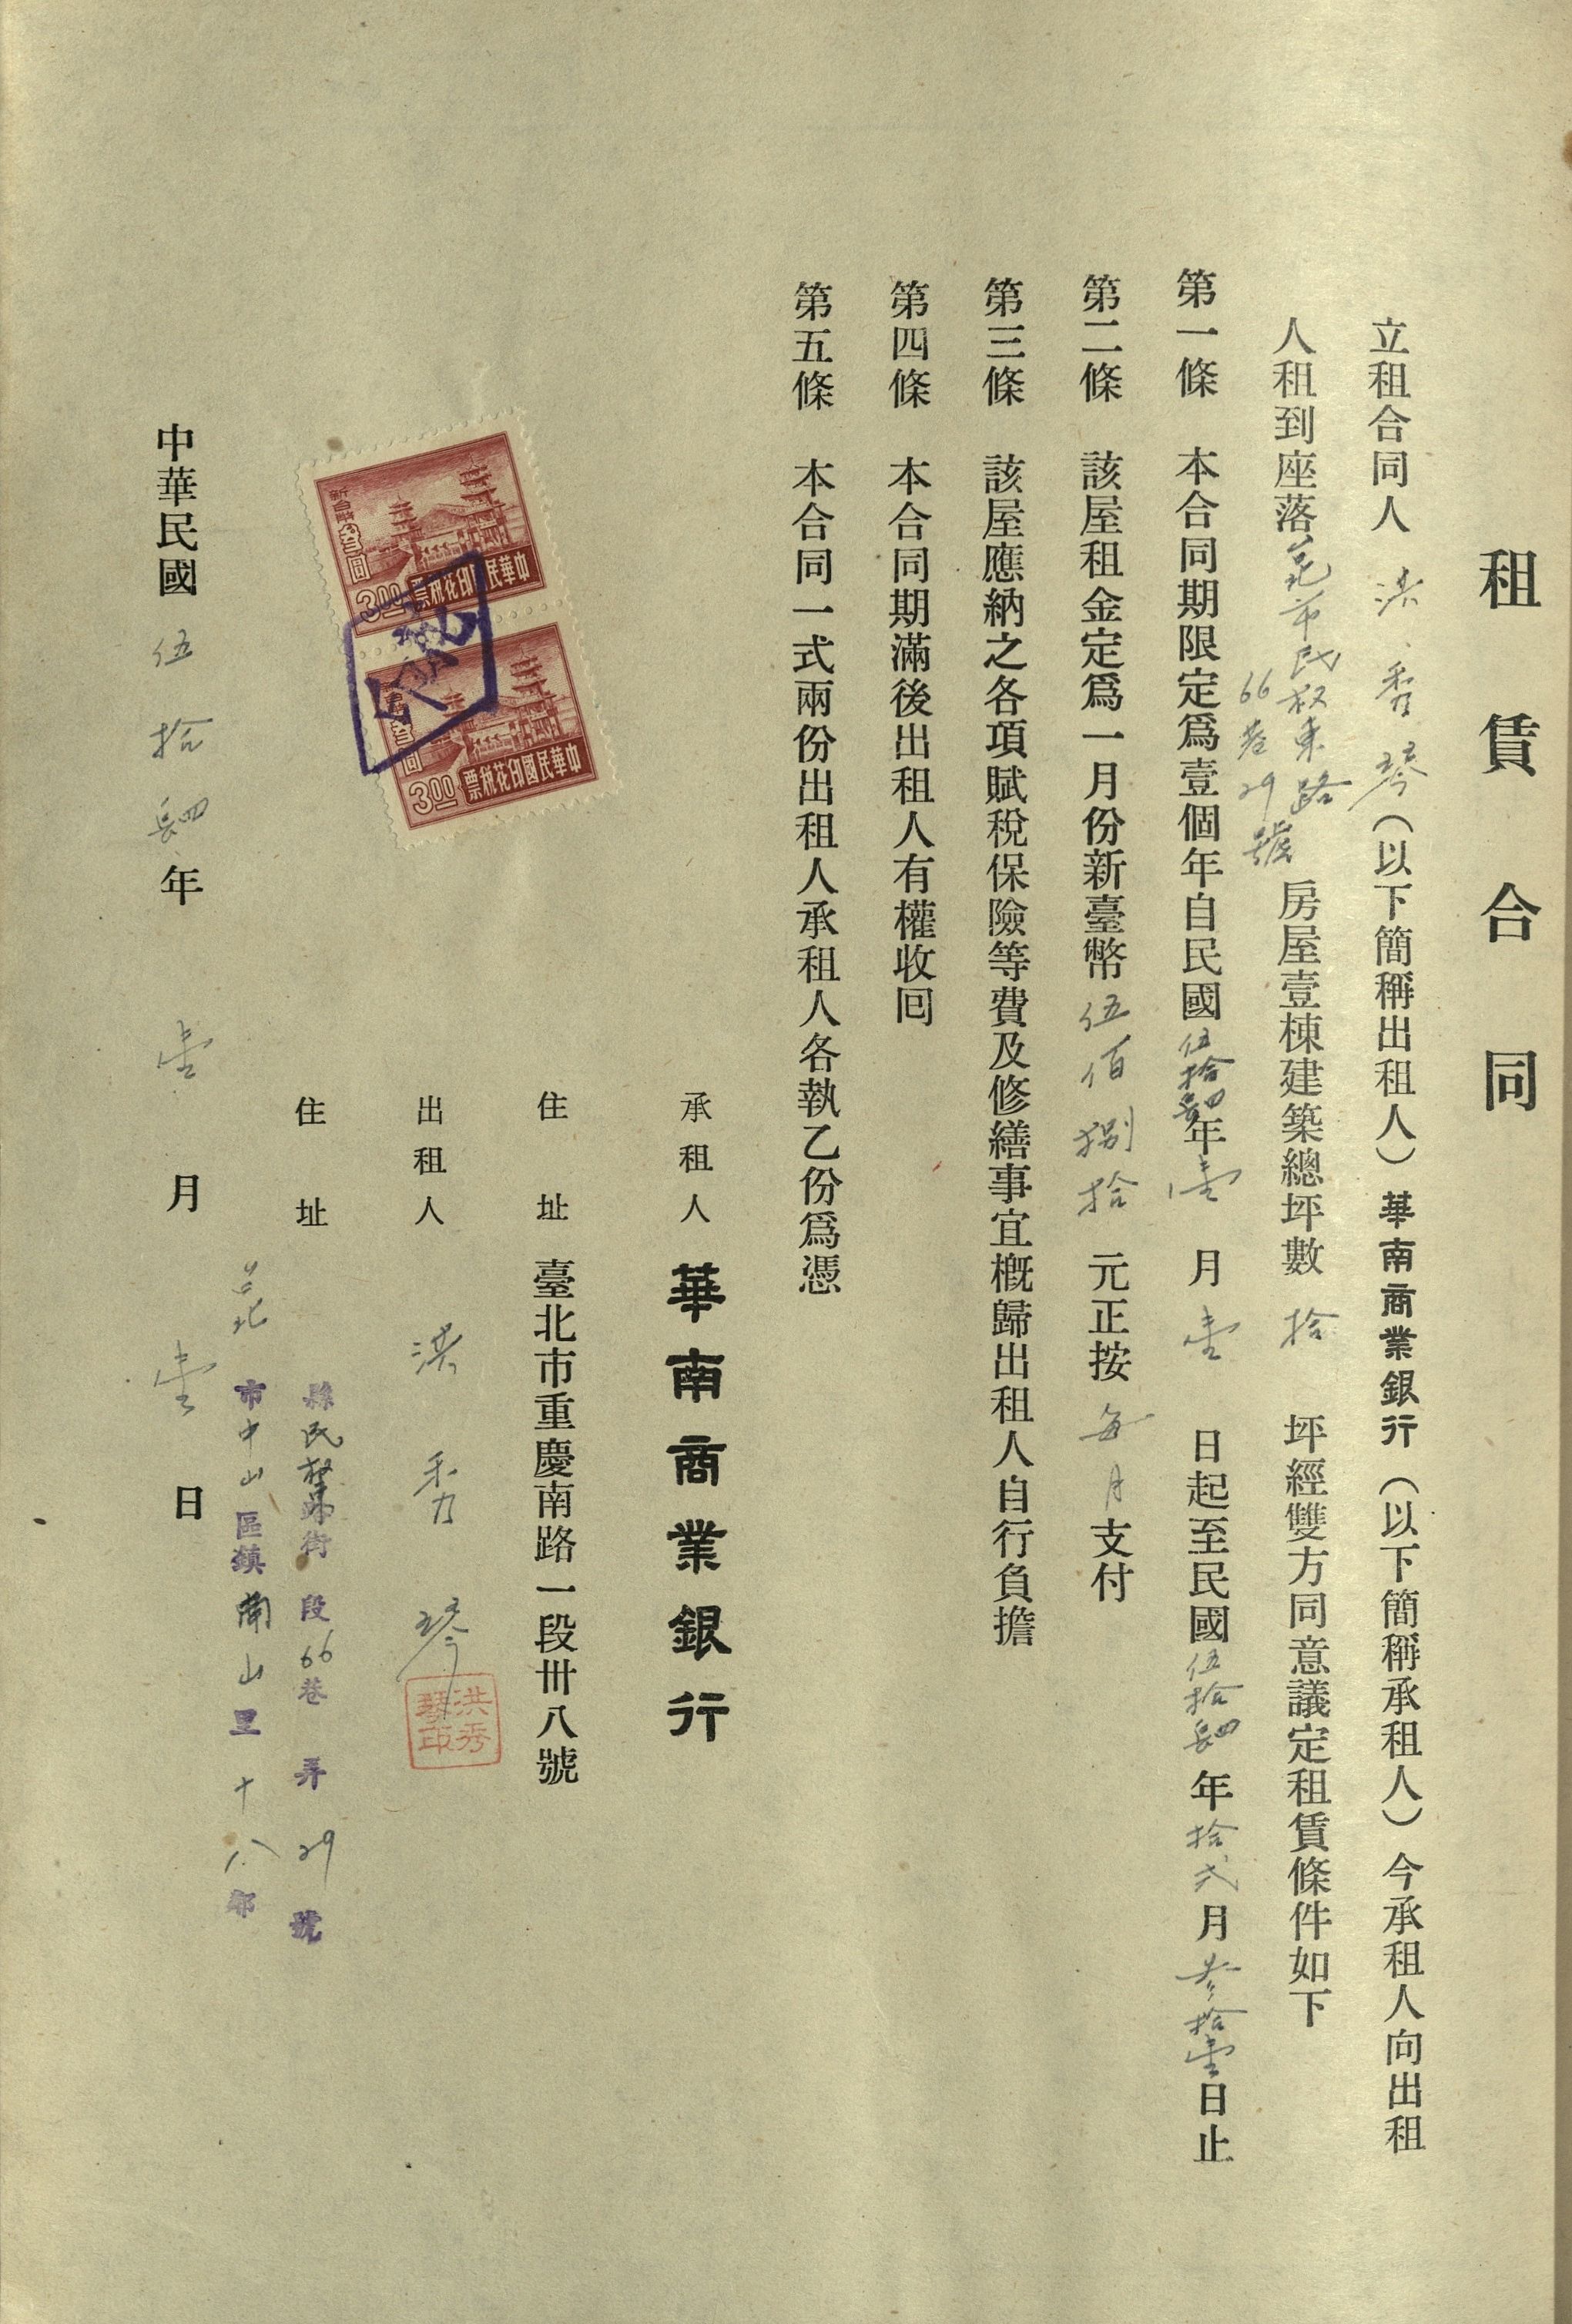 租賃合同
立租合同人 洪秀琴（以下簡稱出租人）華南商業銀行（以下簡稱承租人）今承租人向出租
人租到座落北市民权東路
66巷29號
房屋壹棟建築總坪數 拾 坪經雙方同意議定租賃條件如下
第一條 本合同期限定爲壹個年自民國伍拾肆年壹月壹日起至民國伍拾肆年拾弍月叁拾壹日止
第二條 該屋租金定爲一月份新臺幣伍佰捌拾元正按每月支付
第三條 該屋應納之各項賦稅保險等費及修繕事宜概歸出租人自行負擔
第四條 本合同期滿後出租人有權收回
第五條 本合同一式兩份出租人承租人各執乙份爲憑
承租人 華南商業銀行
住址 臺北市重慶南路一段卅八號
出租人 洪秀琴
洪秀琴印
住址
縣民權東路街 段66巷 弄29號
台北市中山區鎮南山里十八鄰
中華民國伍拾肆年壹月壹日
新台幣叁圓
中華民國印花稅票
3.00
叁圓
中華民國印花稅票
3.00